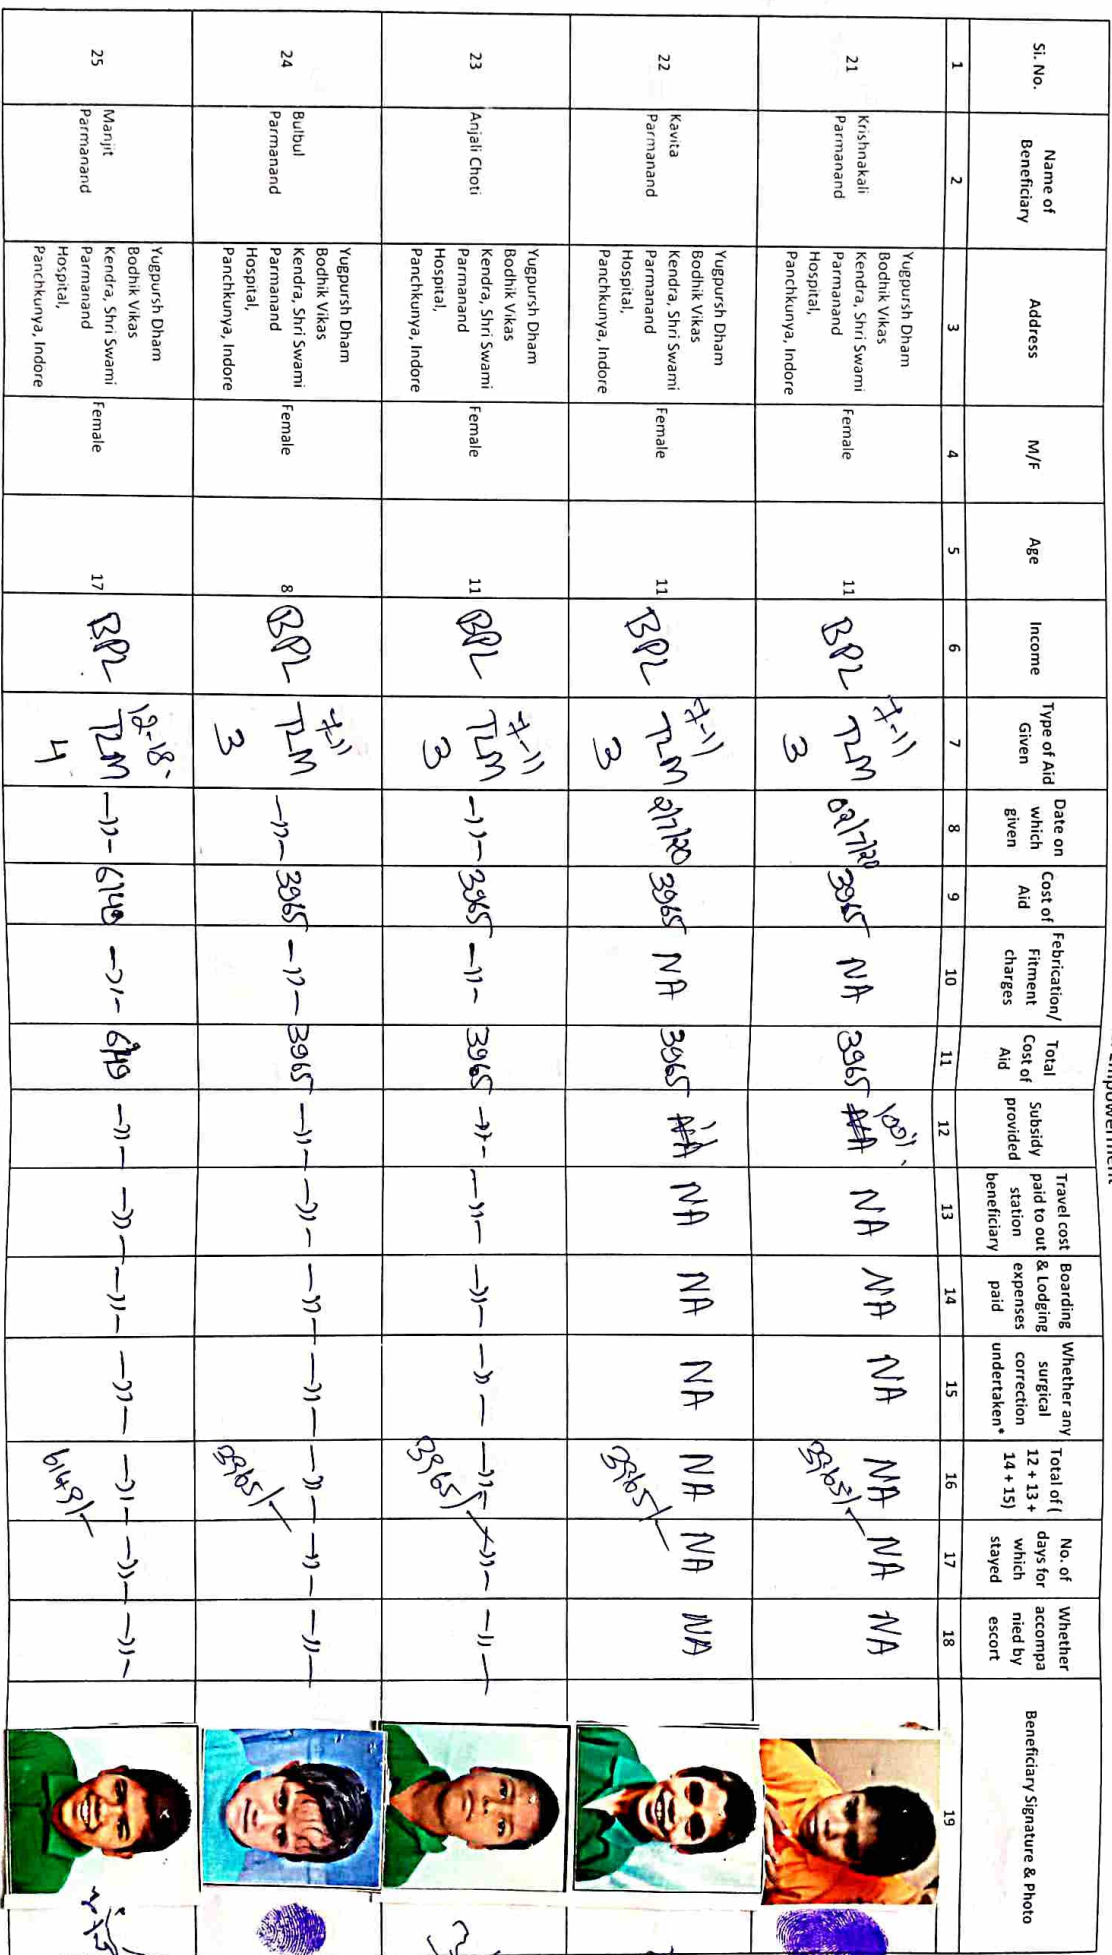 Empowerment
Si. No.
Name of
Beneficiary
Address
M/F
Age
Income
Type of Aid
Given
Date on
which
given
Cost of
Aid
Febrication/
Fitment
charges
Total
Cost of
Aid
Subsidy
provided
Travel cost
paid to out
station
beneficiary
Boarding
& Lodging
expenses
paid
Whether any
surgical
correction
undertaken*
Total of (
12 + 13 +
14 + 15)
No. of
days for
which
stayed
Whether
accompa
nied by
escort
Beneficiary Signature & Photo
1 2 3 4 5 6 7 8 9 10 11 12 13 14 15 16 17 18 19
21
Krishnakali
Parmanand
Yugpursh Dham
Bodhik Vikas
Kendra, Shri Swami
Parmanand
Hospital,
Panchkunya, Indore
Female
11
BPL
7-11
TLM
3
02/7/20
3965
NA
3965
100%
NA
NA
NA
NA
3965/-
NA
NA
22
Kavita
Parmanand
Yugpursh Dham
Bodhik Vikas
Kendra, Shri Swami
Parmanand
Hospital,
Panchkunya, Indore
Female
11
BPL
7-11
TLM
3
2/7/20
3965
NA
3965
NA
NA
NA
NA
3965/-
NA
NA
23
Anjali Choti
Yugpursh Dham
Bodhik Vikas
Kendra, Shri Swami
Parmanand
Hospital,
Panchkunya, Indore
Female
11
BPL
7-11
TLM
3
-11-
3965
-11-
3965
-11-
-11-
-11-
-11-
-11-
3965/-
-11-
-11-
24
Bulbul
Parmanand
Yugpursh Dham
Bodhik Vikas
Kendra, Shri Swami
Parmanand
Hospital,
Panchkunya, Indore
Female
8
BPL
7-11
TLM
3
-11-
3965
-11-
3965
-11-
-11-
-11-
-11-
-11-
3965/-
-11-
-11-
25
Manjit
Parmanand
Yugpursh Dham
Bodhik Vikas
Kendra, Shri Swami
Parmanand
Hospital,
Panchkunya, Indore
Female
17
BPL
12-18
TLM
4
-11-
6149
-11-
6149
-11-
-11-
-11-
-11-
-11-
6149/-
-11-
-11-